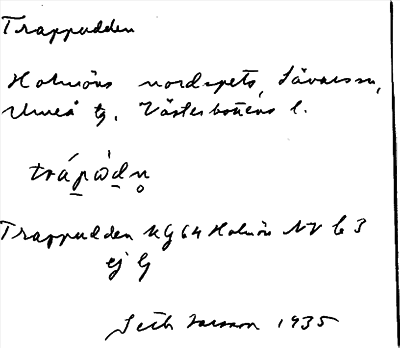 Trappudden
Holmöns nordspets, Sävars sn,
Umeå tg, Västerbottens l.
trápòdn̥
Trappudden KG 64 Holmön NV b 3
ej G
Seth Larsson 1935